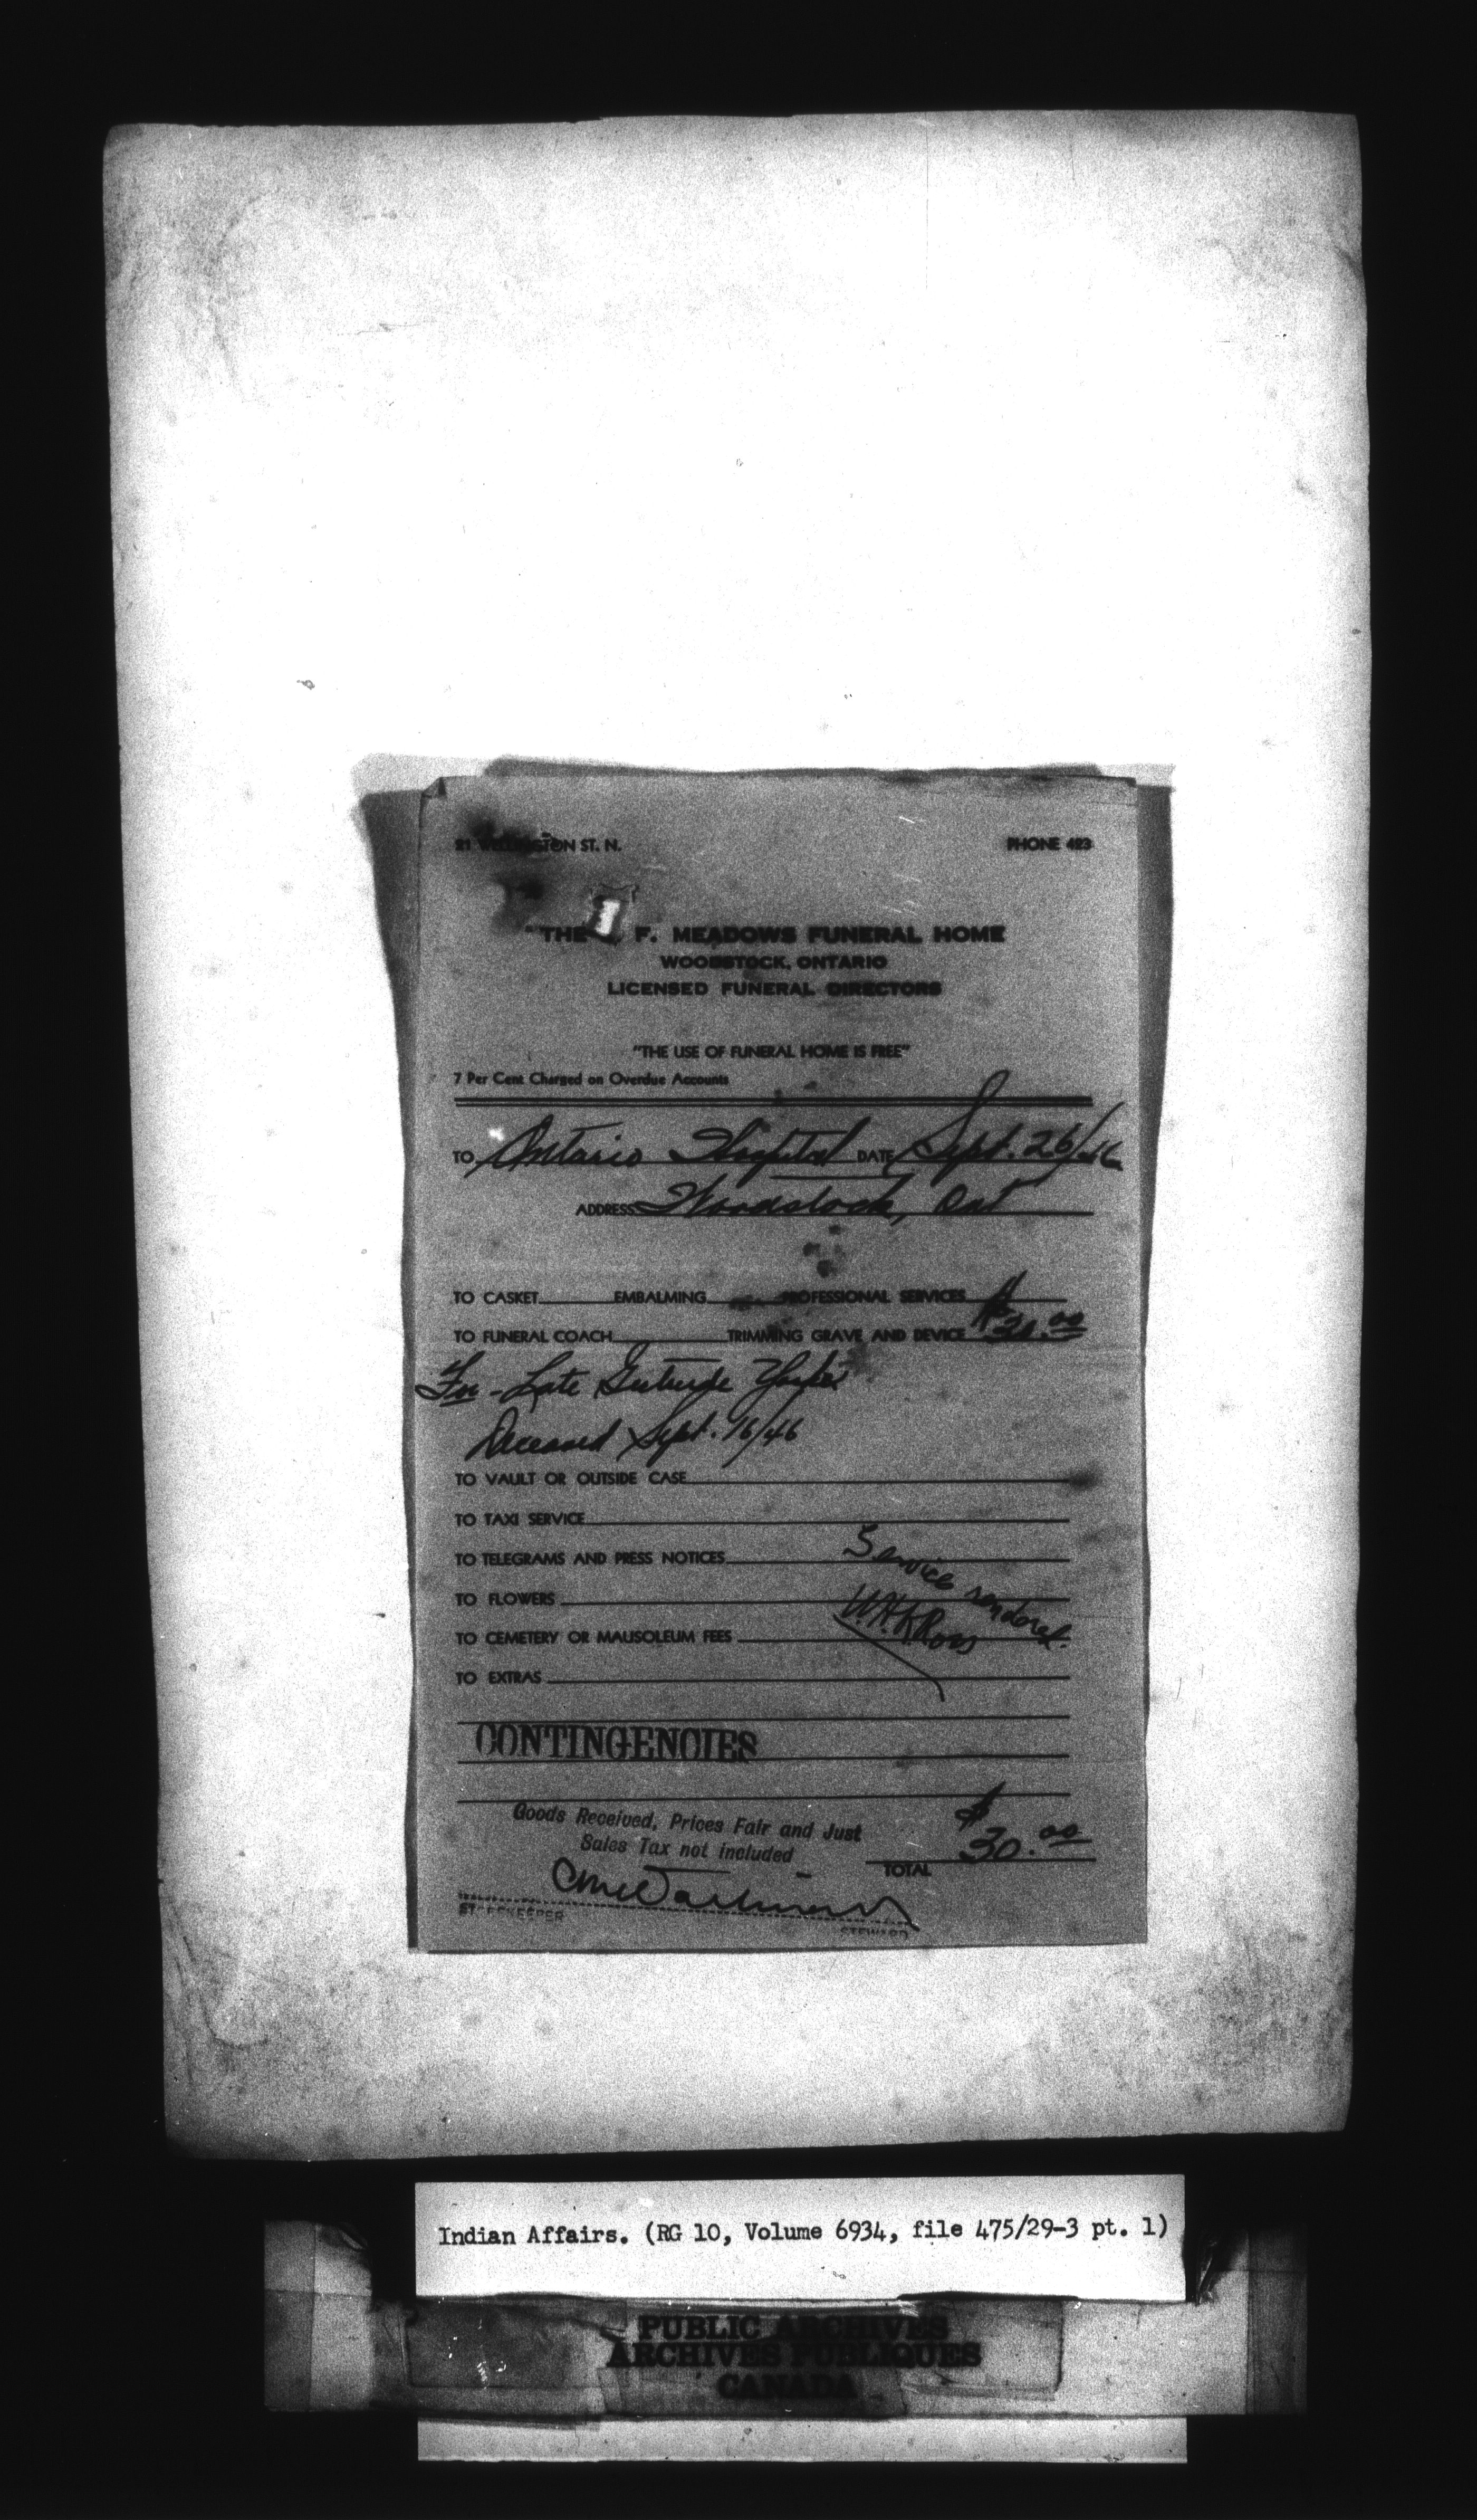 21 WELLINGTON ST. N. PHONE 423
"THE F. MEADOWS FUNERAL HOME
WOODSTOCK, ONTARIO
LICENSED FUNERAL DIRECTORS
"THE USE OF FUNERAL HOME IS FREE"
7 Per Cent Charged on Overdue Accounts
TO Ontario Hospital DATE Sept. 26/46
ADDRESS Woodstock, Ont
TO CASKET EMBALMING PROFESSIONAL SERVICES $
TO FUNERAL COACH TRIMMING GRAVE AND DEVICE 30.00
For - Late Gertrude
Deceased Sept. 16/46
TO VAULT OR OUTSIDE CASE
TO TAXI SERVICE
TO TELEGRAMS AND PRESS NOTICES
Service rendered.
TO FLOWERS
W.H.K. Ross
TO CEMETERY OR MAUSOLEUM FEES
TO EXTRAS
CONTINGENCIES
Goods Received, Prices Fair and Just
Sales Tax not included
$ 30.00
TOTAL
STOREKEEPER STEWARD
Indian Affairs. (RG 10, Volume 6934, file 475/29-3 pt. 1)
PUBLIC ARCHIVES
ARCHIVES PUBLIQUES
CANADA